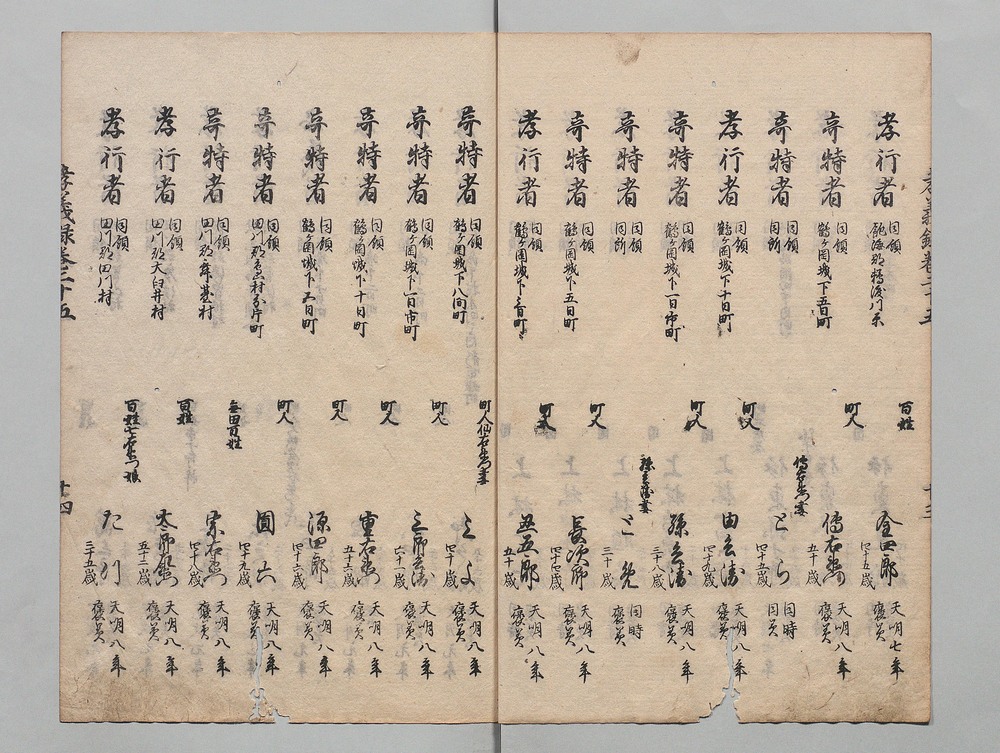 孝義録巻二十五
孝行者
同領
飽海郡
百姓
金四郎
四十五歳
天明七年
褒美
奇特者
同領
鶴ヶ岡城下五日町
町人
傳右衛門
五十歳
天明八年
褒美
奇特者
同領
同所
傳右衛門妻
とら
四十五歳
同時
同美
孝行者
同領
鶴ヶ岡城下十日町
町人
由兵衛
四十九歳
天明八年
褒美
奇特者
同領
鶴ヶ岡城下一日市町
町人
孫兵衛
三十八歳
天明八年
褒美
奇特者
同領
同所
孫兵衛妻
とめ
三十歳
同時
褒美
奇特者
同領
鶴ヶ岡城下五日町
町人
長次郎
四十四歳
天明八年
褒美
孝行者
同領
鶴ヶ岡城下三日町
町人
五十歳
天明八年
褒美
奇特者
同領
鶴ヶ岡城下八間町
町人仙右衛門妻
みよ
四十歳
天明八年
褒美
奇特者
同領
鶴ヶ岡城下一日市町
町人
三郎兵衛
六十一歳
天明八年
褒美
奇特者
同領
鶴ヶ岡城下十日町
町人
重右衛門
五十三歳
天明八年
褒美
奇特者
同領
鶴ヶ岡城下五日町
町人
源四郎
四十六歳
天明八年
褒美
奇特者
同領
町人
圓六
四十九歳
天明八年
褒美
奇特者
同領
田川郡
無田百姓
宗右衛門
四十八歳
天明八年
褒美
孝行者
同領
田川郡大臼井村
百姓
五十二歳
天明八年
褒美
孝行者
同領
田川郡田川村
百姓七右衛門娘
三十五歳
天明八年
褒美
孝義録巻二十五
廿四